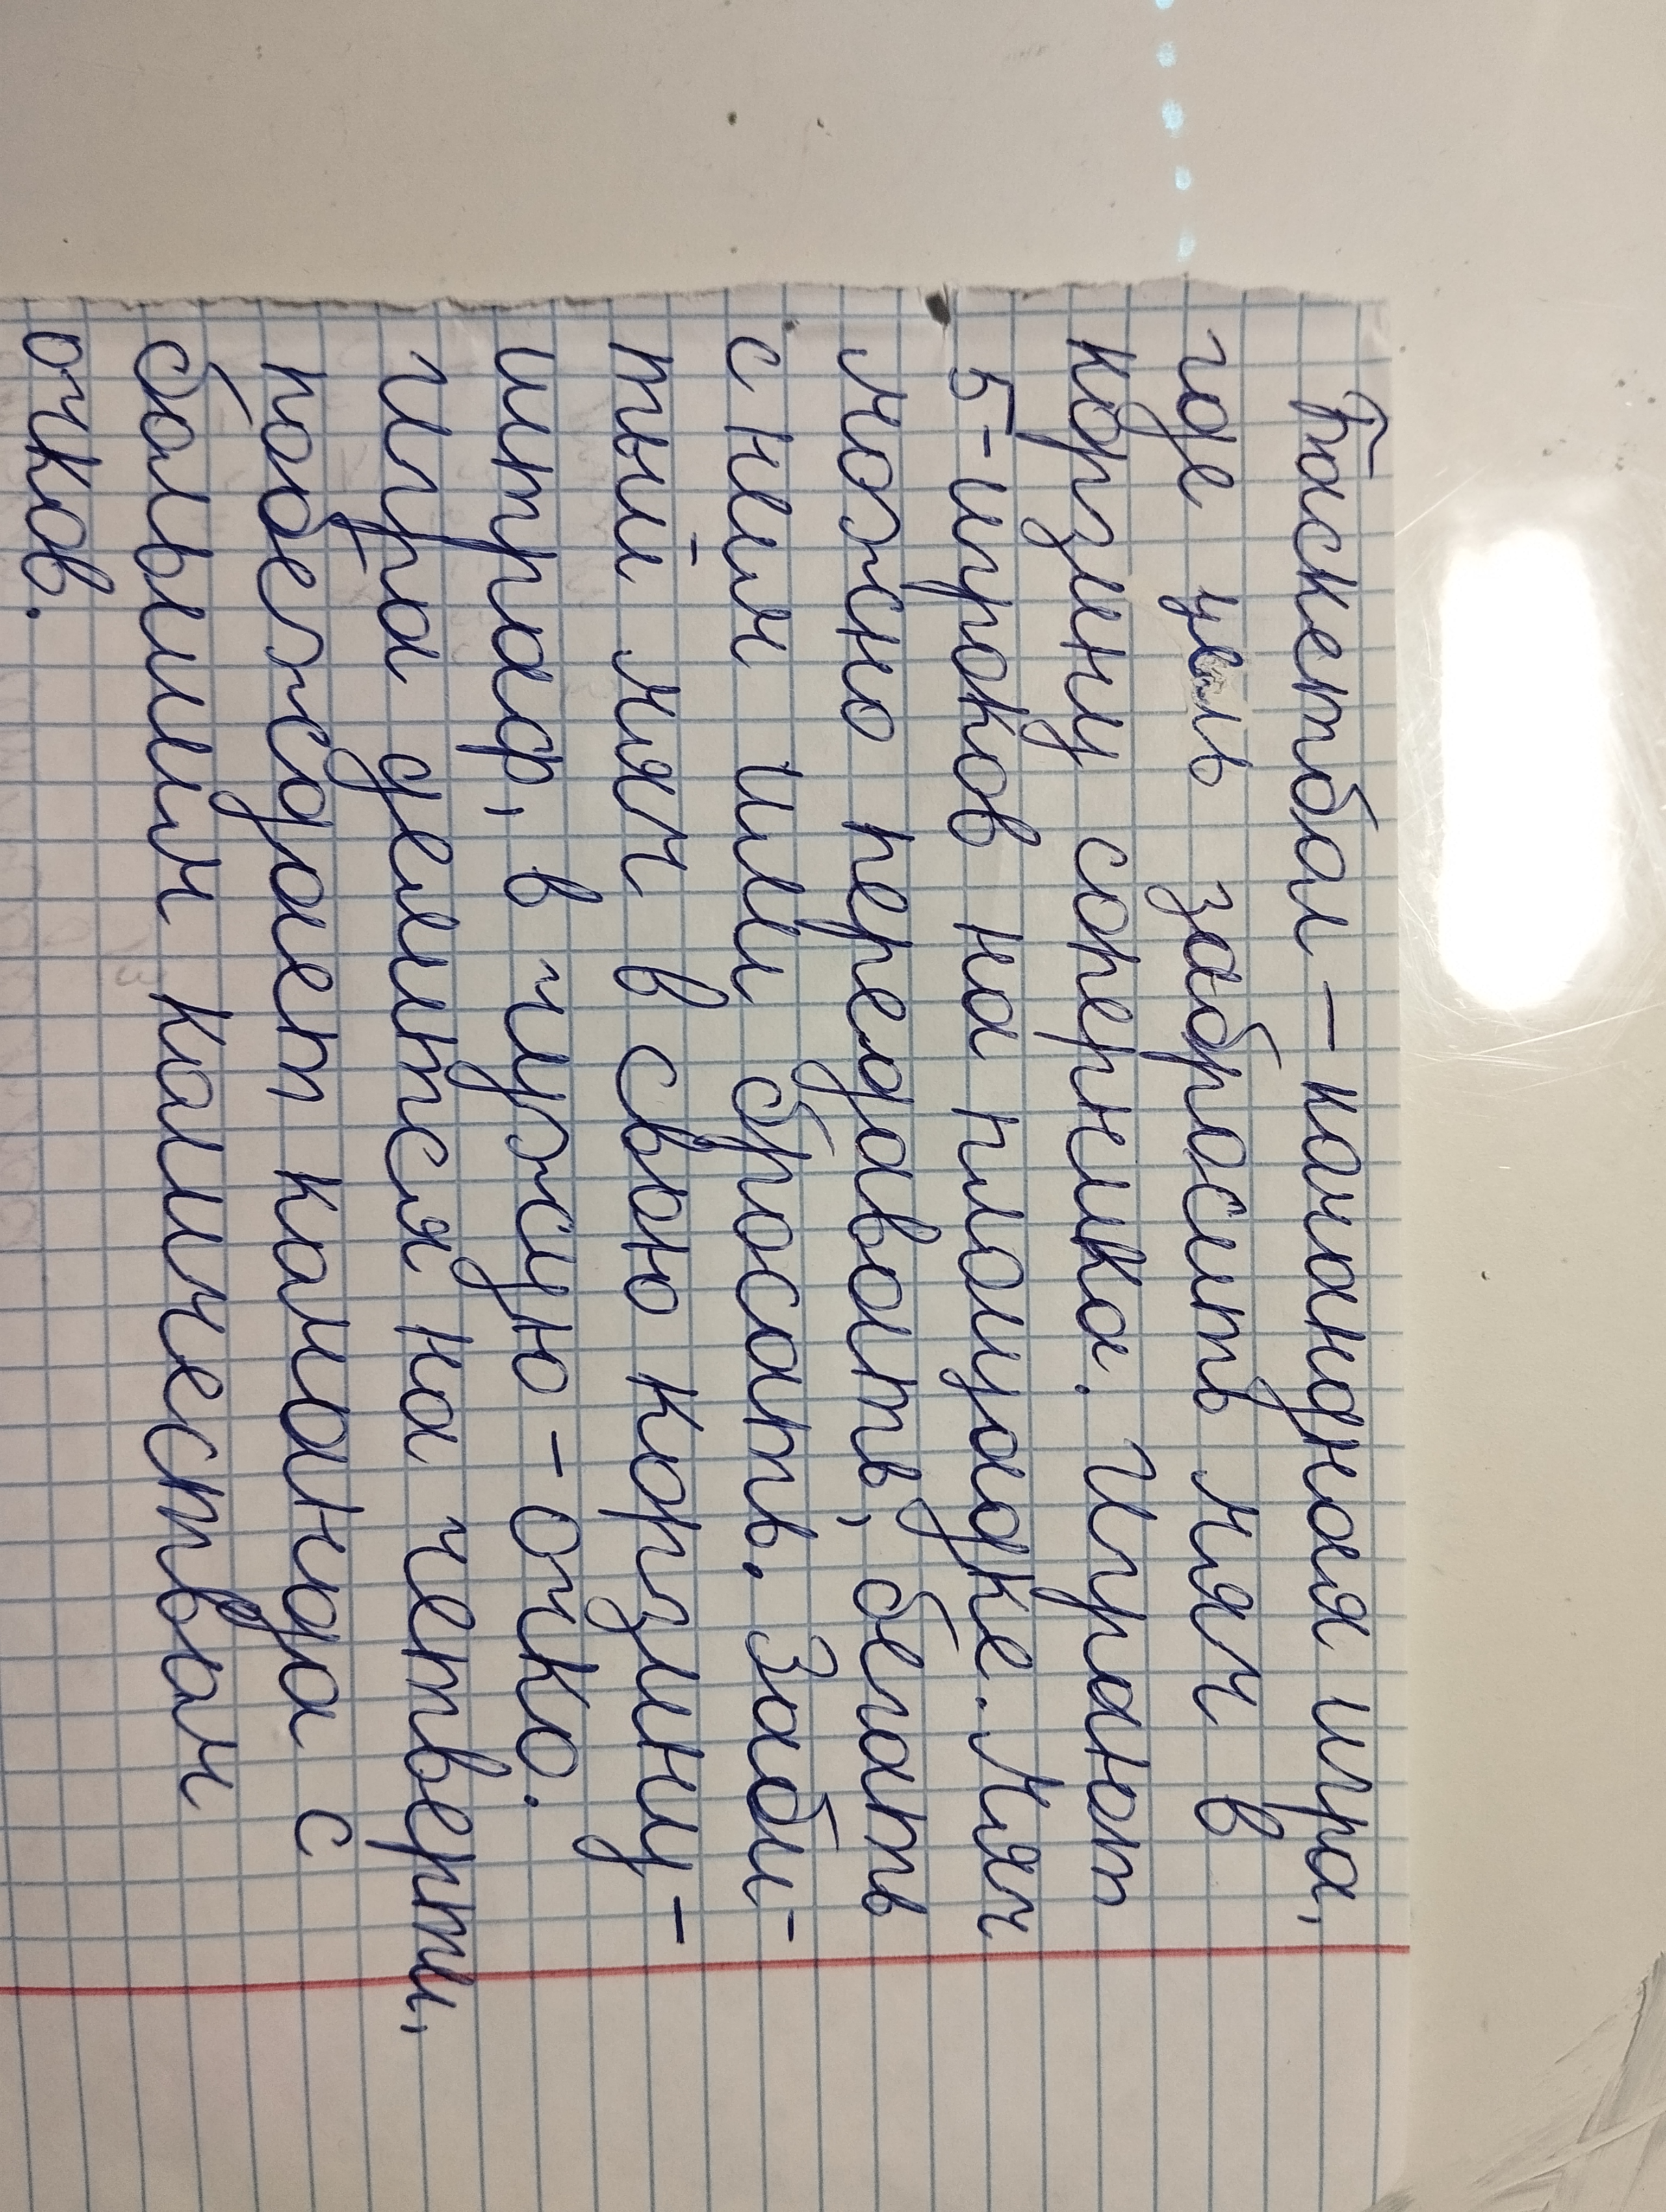 Баскетбол – командная игра,
где цель забросить мяч в
корзину соперника. Играют
5-игроков на площадке. Мяч
можно передавать, бегать
с ним или бросать. Заби-
тый мяч в свою корзину -
штраф, в чужую - очко.
Игра делится на четверти,
побеждает команда с
большим количеством
очков.